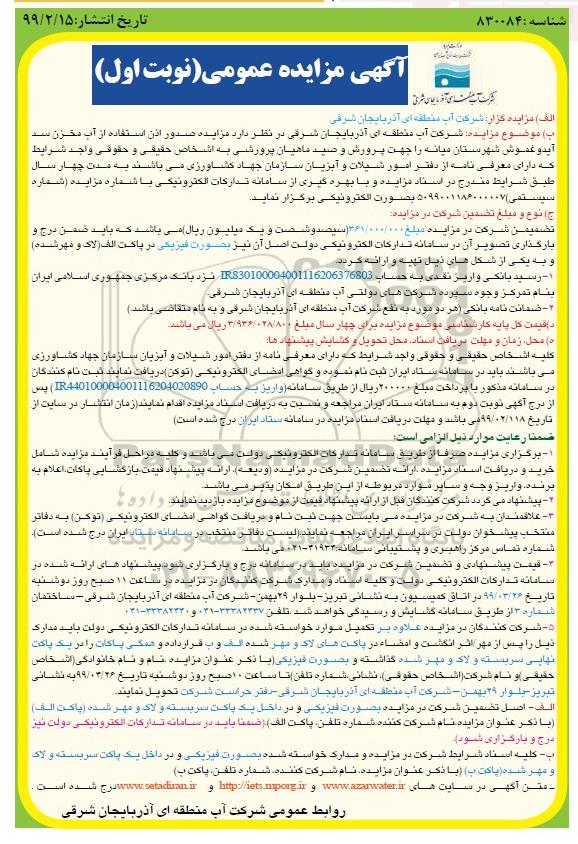 شناسه :۸۳۰۰۸۴
تاریخ انتشار:۹۹/۲/۱۵
آگهی مزایده عمومی(نوبت اول)
الف) مزایده گزار: شرکت آب منطقه ای آذربایجان شرقی
ب) موضوع مزایده: شرکت آب منطقه ای آذربایجان شرقی در نظر دارد مزایده صدور اذن استفاده از آب مخزن سد
آیدوغموش شهرستان میانه را جهت پرورش و صید ماهیان پرورشی به اشخاص حقیقی و حقوقی واجد شرایط
که دارای معرفی نامه از دفتر امور شیلات و آبزیان سازمان جهاد کشاورزی می باشند به مدت چهار سال
طبق شرایط مندرج در اسناد مزایده و با بهره گیری از سامانه تدارکات الکترونیکی با شماره مزایده (شماره
سیستمی)۵۰۹۹۰۰۱۱۸۶۰۰۰۰۰۷ بصورت الکترونیکی برگزار نماید.
ج) نوع و مبلغ تضمین شرکت در مزایده:
تضمین شرکت در مزایده مبلغ ۳۶۱/۰۰۰/۰۰۰(سیصدوشصت و یک میلیون ریال)می باشد که باید ضمن درج و
بارگذاری تصویر آن در سامانه تدارکات الکترونیکی دولت اصل آن نیز بصورت فیزیکی در پاکت الف(لاک و مهرشده)
و به یکی از شکل های ذیل تهیه و ارائه گردد.
۱-رسید بانکی واریز نقدی به حساب IR830100004001116206376803 نزد بانک مرکزی جمهوری اسلامی ایران
بنام تمرکز وجوه سپرده شرکت های دولتی آب منطقه ای آذربایجان شرقی
۲-ضمانت نامه بانکی (هر دو مورد به نفع شرکت آب منطقه ای آذربایجان شرقی و به نام متقاضی باشد.)
د)قیمت کل پایه کارشناسی موضوع مزایده برای چهار سال مبلغ ۳/۹۳۶/۰۲۸/۸۰۰ ریال می باشد.
ه) محل، زمان و مهلت دریافت اسناد، محل تحویل و گشایش پیشنهاد ها:
کلیه اشخاص حقیقی و حقوقی واجد شرایط که دارای معرفی نامه از دفتر امور شیلات و آبزیان سازمان جهاد کشاورزی
می باشند باید در سامانه ستاد ایران ثبت نام نموده و گواهی امضای الکترونیکی (توکن)دریافت نمایند.ثبت نام کنندگان
در سامانه مذکور با پرداخت مبلغ ۲۰۰۰۰۰۰ریال از طریق سامانه(واریز به حساب IR440100004001116204020890 ) پس
از درج آگهی نوبت دوم به سامانه ستاد ایران مراجعه و نسبت به دریافت اسناد مزایده اقدام نمایند(زمان انتشار در سایت از
تاریخ ۹۹/۰۲/۱۱۸می باشد و مهلت دریافت اسناد مزایده در سامانه ستاد ایران درج شده است)
ضمنا رعایت موارد ذیل الزامی است:
۱-برگزاری مزایده صرفا از طریق سامانه تدارکات الکترونیکی دولت می باشد و کلیه مراحل فرآیند مزایده شامل
خرید و دریافت اسناد مزایده ،ارائه تضمین شرکت در مزایده (ودیعه)، ارائه پیشنهاد قیمت،بازگشایی پاکات،اعلام به
برنده، واریز وجه و سایر موارد مربوطه از این طریق امکان پذیر می باشد.
۲-پیشنهاد می گردد شرکت کنندگان قبل از ارائه پیشنهاد قیمت از موضوع مزایده بازدید نمایند.
۳-علاقمندان به شرکت در مزایده می بایست جهت ثبت نام و دریافت گواهی امضای الکترونیکی (توکن) به دفاتر
منتخب پیشخوان دولت در سراسر ایران مراجعه نمایند(لیست دفاتر منتخب در سامانه ستاد ایران درج شده است).
شماره تماس مرکز راهبری و پشتیبانی سامانه:۳۱۹۳۳-۰۴۱ می باشد.
۳-قیمت پیشنهادی و تضمین شرکت در مزایده باید در سامانه درج و بارگزاری شود.پیشنهاد های ارائه شده در
سامانه تدارکات الکترونیکی دولت و کلیه اسناد و مدارک شرکت کنندگان در مزایده در ساعت ۱۱ صبح روز دوشنبه
تاریخ ۹۹/۰۳/۲۶ در اتاق کمیسیون به نشانی تبریز- بلوار ۲۹بهمن- شرکت آب منطقه ای آذربایجان شرقی – ساختمان
شماره ۳ از طریق سامانه گشایش و رسیدگی خواهد شد .تلفن ۳۳۳۸۲۳۳۷-۰۴۱ و ۳۳۳۸۲۲۳۰-۰۴۱
۵-شرکت کنندگان در مزایده علاوه بر تکمیل موارد خواسته شده در سامانه تدارکات الکترونیکی دولت باید مدارک
ذیل را پس از مهر/اثر انگشت و امضاء در پاکت های لاک و مهر شده الف و ب قرارداده و همگی پاکات را در یک پاکت
نهایی سربسته و لاک و مهر شده گذاشته و بصورت فیزیکی(با ذکر عنوان مزایده ،نام و نام خانوادگی(اشخاص
حقیقی)و نام شرکت(اشخاص حقوقی)، نشانی،شماره تلفن)تا ساعت ۱۰صبح روز دوشنبه تاریخ ۹۹/۰۳/۲۶به نشانی
تبریز-بلوار ۲۹بهمن – شرکت آب منطقه ای آذربایجان شرقی-دفتر حراست شرکت تحویل نمایند.
الف- اصل تضمین شرکت در مزایده بصورت فیزیکی و در داخل یک پاکت سربسته و لاک و مهر شده (پاکت الف)
(با ذکر عنوان مزایده،نام شرکت کننده،شماره تلفن، پاکت الف).(ضمنا باید در سامانه تدارکات الکترونیکی دولت نیز
درج و بارگزاری شود).
ب- کلیه اسناد شرایط شرکت در مزایده و مدارک خواسته شده بصورت فیزیکی و در داخل یک پاکت سربسته و لاک
و مهر شده(پاکت ب) (با ذکر عنوان مزایده، نام شرکت کننده، شماره تلفن، پاکت ب)
ـ متن آگهی در سایت های www.azarwater.ir و http://iets.mporg.ir و www.setadiran.ir درج شده است .
روابط عمومی شرکت آب منطقه ای آذربایجان شرقی